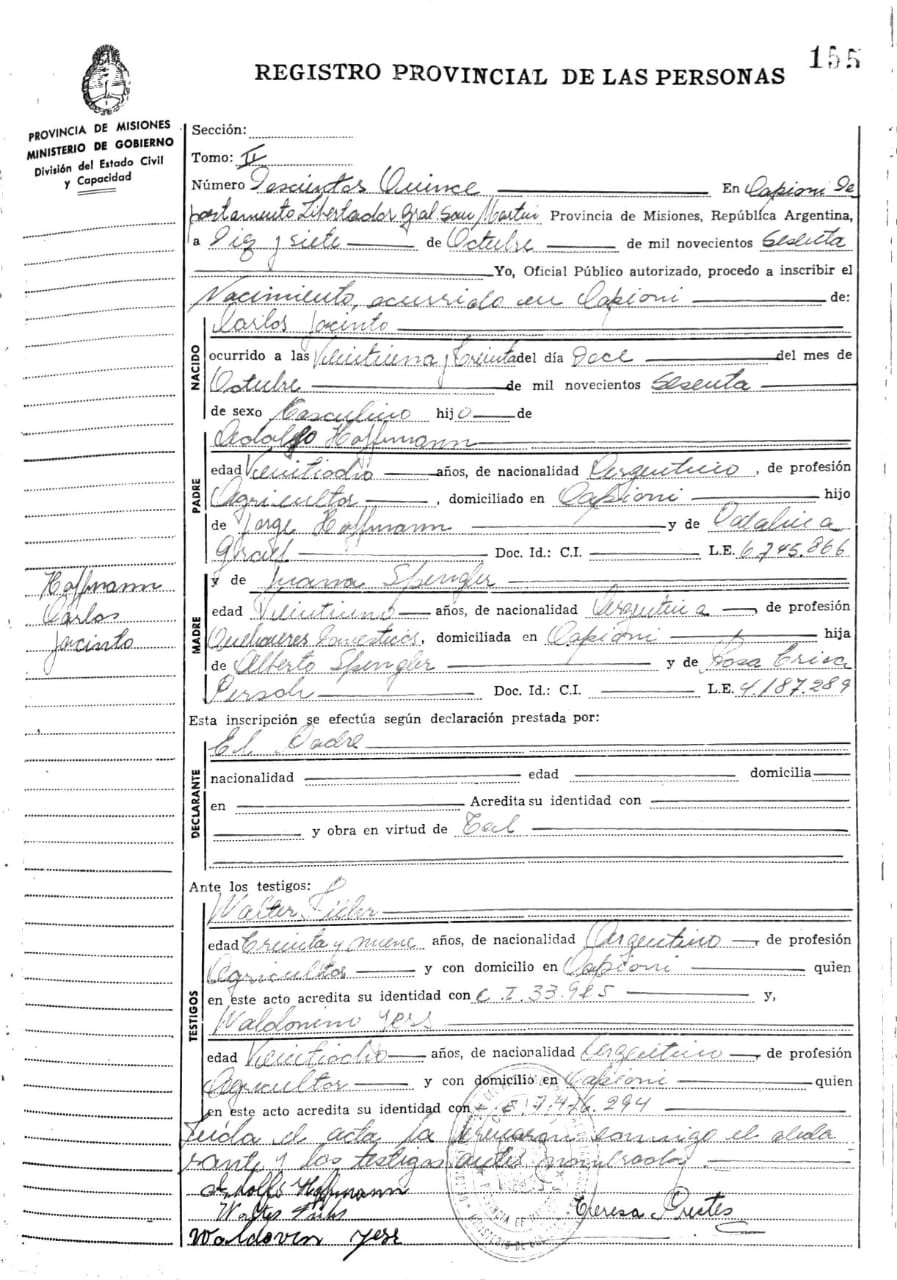 155
REGISTRO PROVINCIAL DE LAS PERSONAS
PROVINCIA DE MISIONES
MINISTERIO DE GOBIERNO
División del Estado Civil
y Capacidad
Sección:
Tomo: II
Número Doscientos Quince En Capioni De
partamento Libertador Gral. San Martin Provincia de Misiones, República Argentina,
a Diez y siete de Octubre de mil novecientos Sesenta
Yo, Oficial Público autorizado, procedo a inscribir el
Nacimiento, ocurrido en Capioni de:
NACIDO
Carlos Jacinto
ocurrido a las Veintiuna y Treinta del día Doce del mes de
Octubre de mil novecientos Sesenta
de sexo Masculino hijo de
PADRE
Adolfo Hoffmann
edad Veintiocho años, de nacionalidad Argentino, de profesión
Agricultor, domiciliado en Capioni hijo
de Jorge Hoffmann y de Catalina
Doc. Id.: C.I. L.E. 6.745.866
Hoffmann
Carlos
Jacinto
MADRE
y de Juana Spengler
edad Veintiuno años, de nacionalidad Argentina, de profesión
Quehaceres Domesticos, domiciliada en Capioni hija
de Alberto Spengler y de Rosa Erica
Persch Doc. Id.: C.I. L.E. 4.187.289
Esta inscripción se efectúa según declaración prestada por:
DECLARANTE
El Padre
nacionalidad edad domicilia
en Acredita su identidad con
y obra en virtud de Tal
Ante los testigos:
TESTIGOS
Walter
edad Treinta y nueve años, de nacionalidad Argentino, de profesión
Agricultor y con domicilio en Capioni quien
en este acto acredita su identidad con C. I. 33.985 y,
Waldomino Yess
edad Veintiocho años, de nacionalidad Argentino, de profesión
Agricultor y con domicilio en Capioni quien
en este acto acredita su identidad con 7.476.294
Leida el acta la firmaron conmigo el decla
rante y los testigos antes nombrados.
Adolfo Hoffmann
Walter
Teresa Prutes
Waldovin Yess